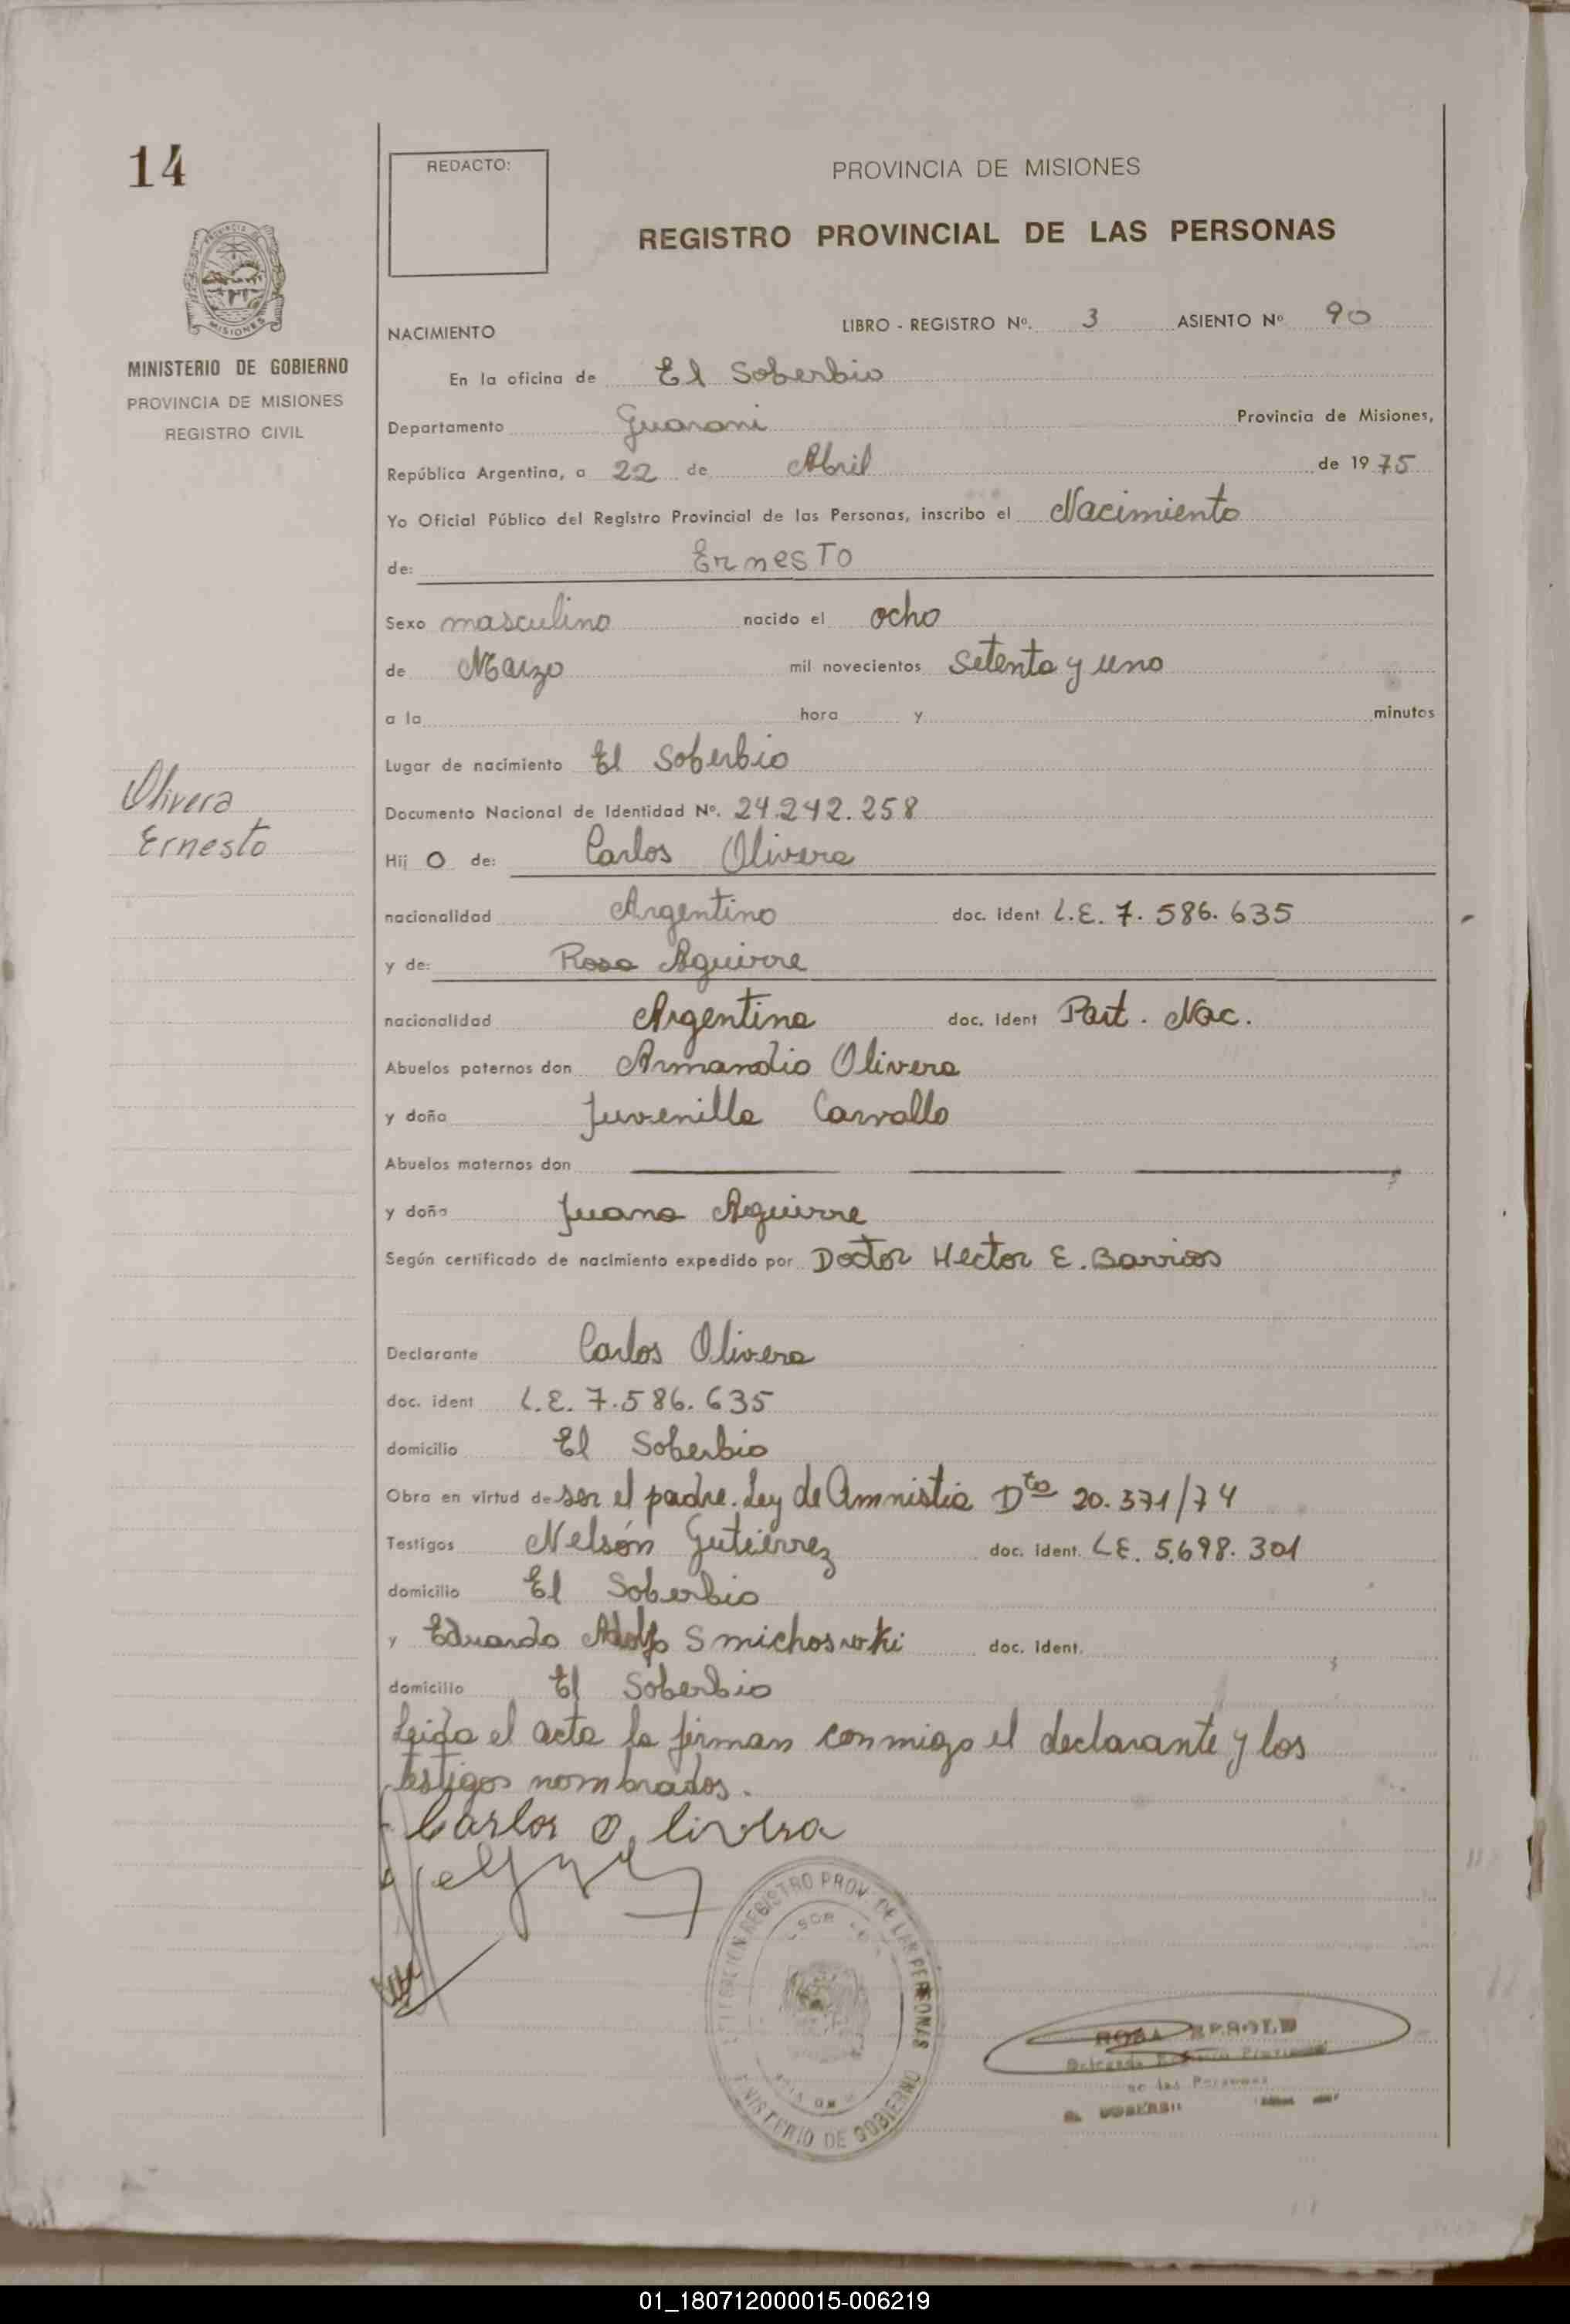 14
REDACTO:
PROVINCIA DE MISIONES
REGISTRO PROVINCIAL DE LAS PERSONAS
MISIONES
MINISTERIO DE GOBIERNO
PROVINCIA DE MISIONES
REGISTRO CIVIL
NACIMIENTO LIBRO - REGISTRO Nº. 3 ASIENTO Nº 90
En la oficina de El Soberbio
Departamento Guarani Provincia de Misiones,
República Argentina, a 22 de Abril de 1975
Yo Oficial Público del Registro Provincial de las Personas, inscribo el Nacimiento
de: Ernesto
Sexo masculino nacido el ocho
de Marzo mil novecientos Setenta y uno
a la hora y minutos
Lugar de nacimiento El Soberbio
Olivera
Ernesto
Documento Nacional de Identidad Nº. 24.242.258
Hij o de: Carlos Olivera
nacionalidad Argentino doc. ident L.E. 7.586.635
y de: Rosa Aguirre
nacionalidad Argentina doc. ident Part. Nac.
Abuelos paternos don Armandio Olivera
y doña Juvenilla Carvallo
Abuelos maternos don
y doña Juana Aguirre
Según certificado de nacimiento expedido por Doctor Hector E. Barrios
Declarante Carlos Olivera
doc. ident L.E. 7.586.635
domicilio El Soberbio
Obra en virtud de ser el padre. Ley de Amnistia Dto 20.371/74
Testigos Nelsón Gutiérrez doc. ident. LE. 5.698.301
domicilio El Soberbio
y Eduardo Adolfo Smichoswki doc. ident.
domicilio El Soberbio
Leida el acta la firman conmigo el declarante y los
testigos nombrados.
Carlos Olivera
REGISTRO PROV. DE LAS PERSONAS
MINISTERIO DE GOBIERNO
ROSA
de las Personas
01_180712000015-006219